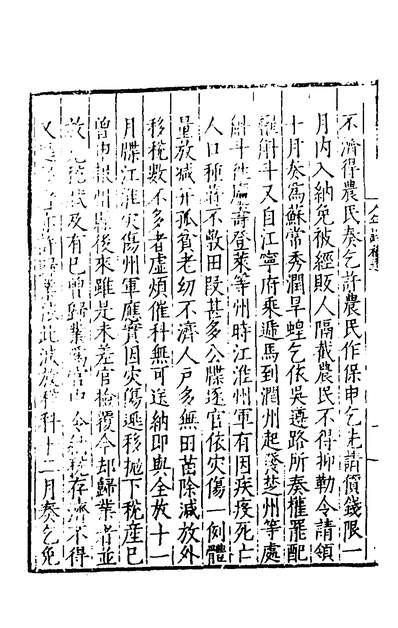 不濟得農民奏乞許農民作保申乞先請價錢限一
月內入納免被經販人隔截農民不得抑勒令請領
十月奏為蘇常秀潤旱蝗乞依吳遵路所奏權罷配
糴斛斗又自江寧府乘遞馬到潤州起發楚州等處
斛斗往廬壽登萊等州時江淮州軍有因疾疫死亡
人口種蒔不敷田段甚多公牒逐官依災傷一例體
量放減并孤貧老幼不濟人戶多無田苗除減放外
移稅數不多者虛煩催科無可送納即與全放十一
月牒江淮災傷州軍應實因災傷逃移拋下稅產已
曾申報州縣後來雖是未差官檢覆今却歸業者並
放 及有已曾歸業為官中令 存濟不得
又 歸業 此波放 科十二月奏乞免